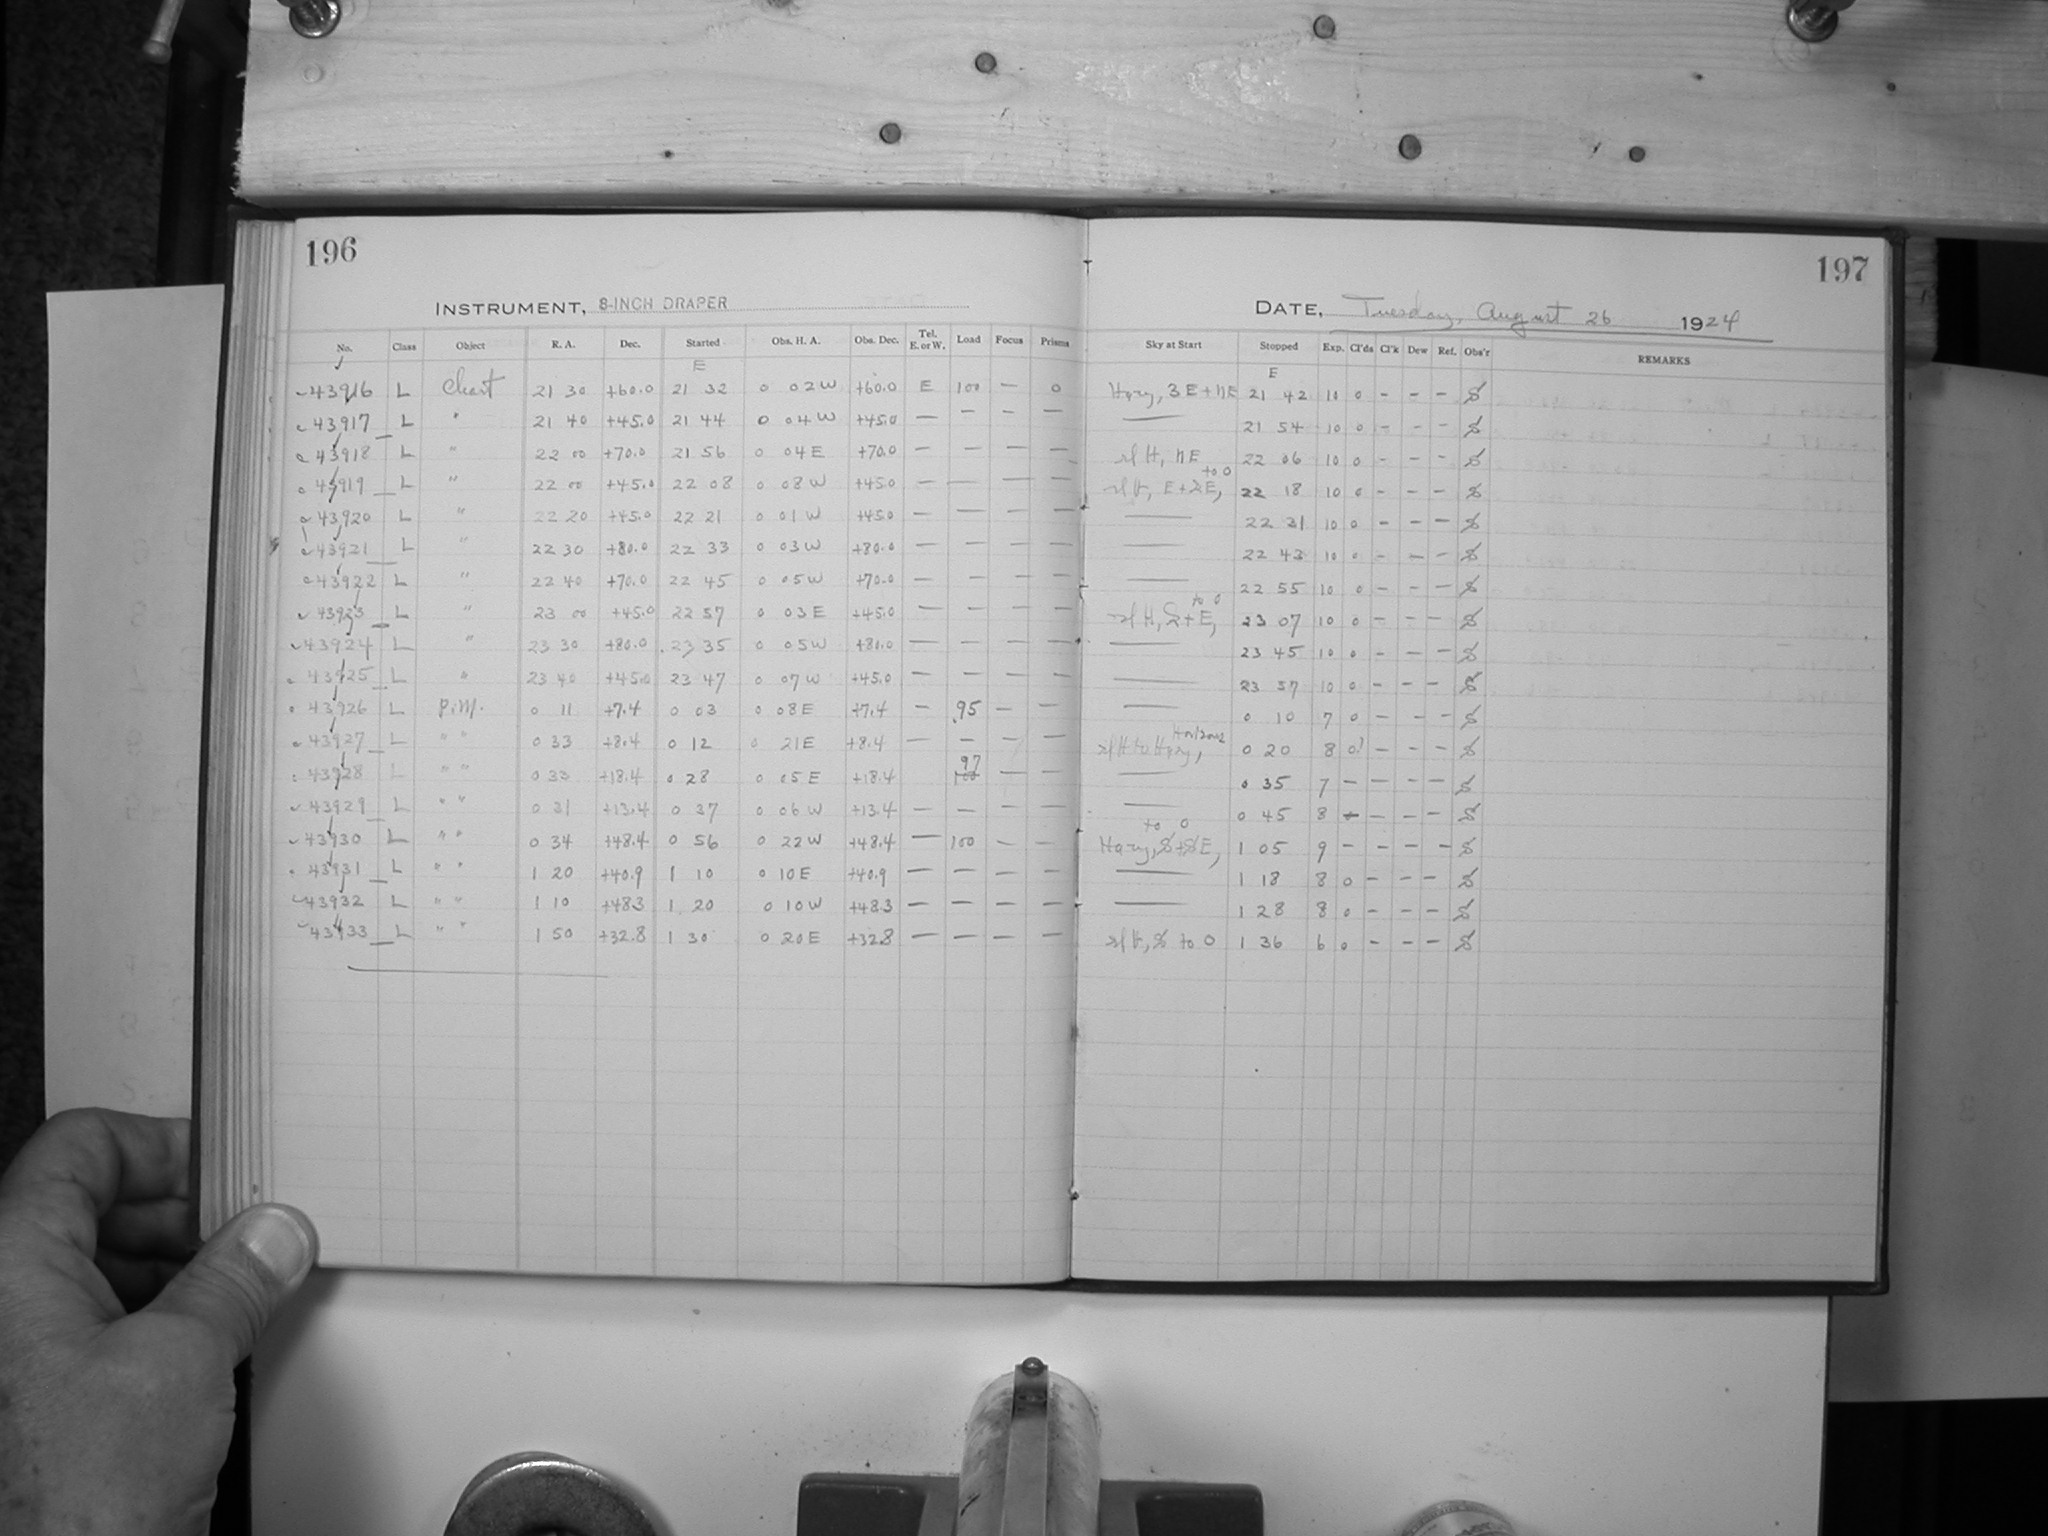 196
197
INSTRUMENT, 8-INCH DRAPER
DATE, Tuesday, August 26 1924
No. Class Object R. A. Dec. Started Obs. H. A. Obs. Dec. Tel. E. or W. Load Focus Prisms Sky at Start Stopped Exp. Cl'ds Cl'k Dew Ref. Obs'r REMARKS
E E
43916 L Chart 21 30 +60.0 21 32 0 02 W +60.0 E 100 — 0 Hazy, 3 E + NE 21 42 10 0 - - -
43917 L " 21 40 +45.0 21 44 0 04 W +45.0 — — — — —— 21 54 10 0 - - -
43918 L " 22 00 +70.0 21 56 0 04 E +70.0 — — — — sl H, NE 22 06 10 0 - - -
43919 L " 22 00 +45.0 22 08 0 08 W +45.0 — — — — sl H, E + 2E, to 0 22 18 10 0 - - -
43920 L " 22 20 +45.0 22 21 0 01 W +45.0 — — — — —— 22 31 10 0 - - -
43921 L " 22 30 +80.0 22 33 0 03 W +80.0 — — — — —— 22 43 10 0 - - -
43922 L " 22 40 +70.0 22 45 0 05 W +70.0 — — — — —— 22 55 10 0 - - -
43923 L " 23 00 +45.0 22 57 0 03 E +45.0 — — — — sl H, E, to 0 23 07 10 0 - - -
43924 L " 23 30 +80.0 23 35 0 05 W +80.0 — — — — —— 23 45 10 0 - - -
43925 L " 23 40 +45.0 23 47 0 07 W +45.0 — — — — —— 23 57 10 0 - - -
43926 L P.M. 0 11 +7.4 0 03 0 08 E +7.4 — 95 — — —— 0 10 7 0 - - -
43927 L " " 0 33 +8.4 0 12 0 21 E +8.4 — — — — sl H to Hazy, Horizons 0 20 8 0? - - -
43928 L " " 0 33 +18.4 0 28 0 05 E +18.4 97 100 — — —— 0 35 7 - - - -
43929 L " " 0 31 +13.4 0 37 0 06 W +13.4 — — — — —— 0 45 8 - - - -
43930 L " " 0 34 +48.4 0 56 0 22 W +48.4 — 100 — — Hazy, E, to 0 1 05 9 - - - -
43931 L " " 1 20 +40.9 1 10 0 10 E +40.9 — — — — —— 1 18 8 0 - - -
43932 L " " 1 10 +48.3 1 20 0 10 W +48.3 — — — — —— 1 28 8 0 - - -
43933 L " " 1 50 +32.8 1 30 0 20 E +32.8 — — — — sl H, to 0 1 36 6 0 - - -